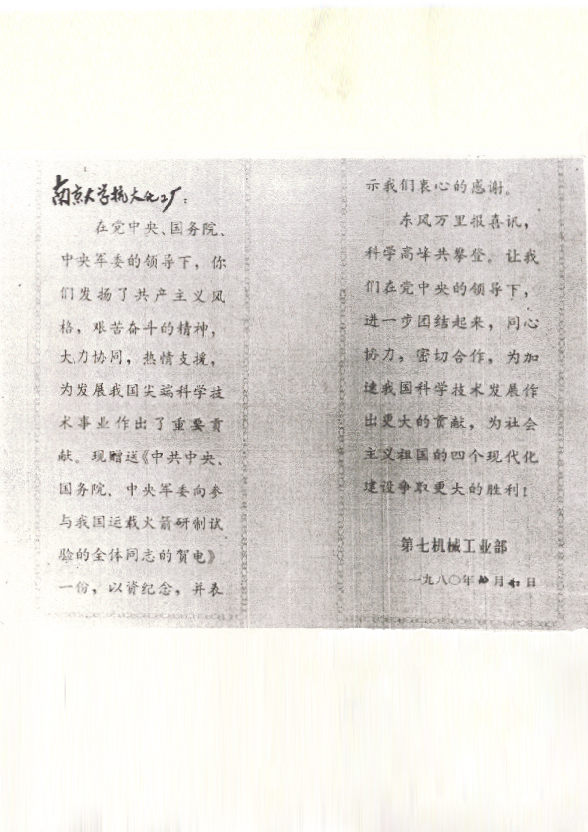 南京大学抗大化工厂：
在党中央、国务院、
中央军委的领导下，你
们发扬了共产主义风
格，艰苦奋斗的精神，
大力协同，热情支援，
为发展我国尖端科学技
术事业作出了重要贡
献。现赠送《中共中央、
国务院、中央军委向参
与我国运载火箭研制试
验的全体同志的贺电》
一份，以资纪念，并表
示我们衷心的感谢。
东风万里报喜讯，
科学高峰共攀登。让我
们在党中央的领导下，
进一步团结起来，同心
协力，密切合作，为加
速我国科学技术发展作
出更大的贡献，为社会
主义祖国的四个现代化
建设争取更大的胜利！
第七机械工业部
一九八〇年 月 日